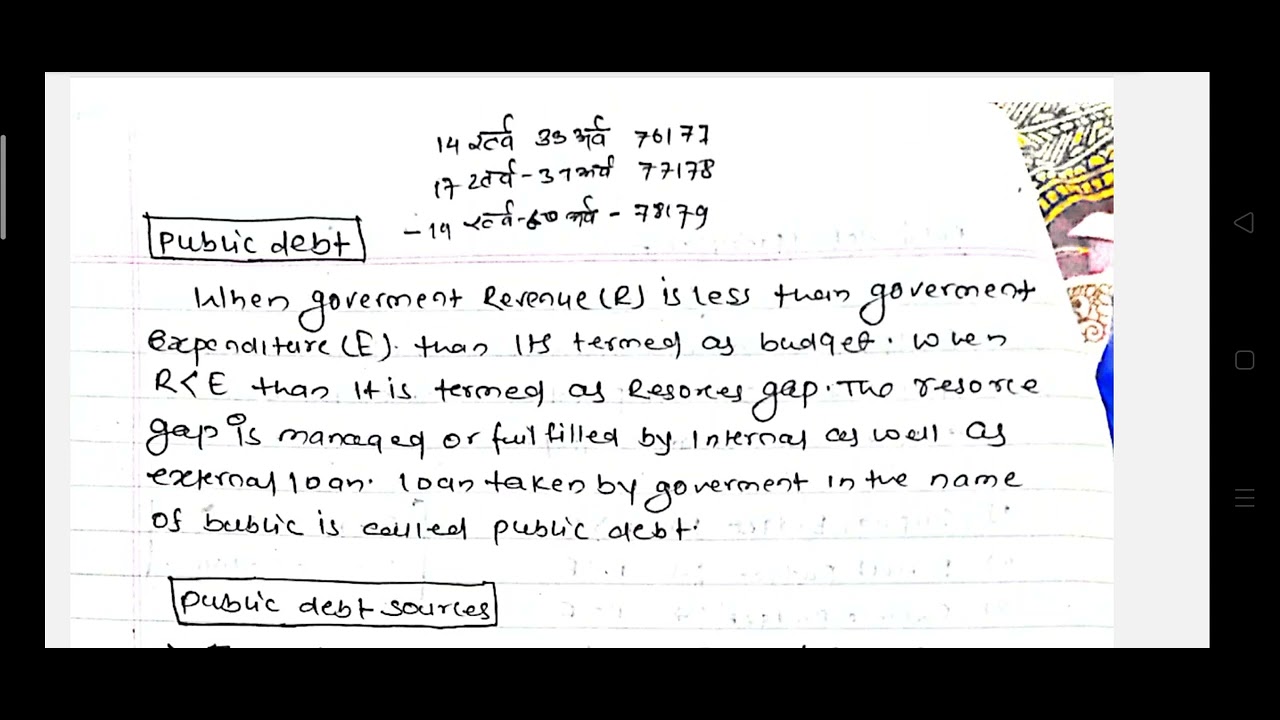 14 खर्व 33 अर्व 76177
17 खर्व - 37 अर्व 77178
- 19 खर्व - 60 अर्व - 78179
Public debt
When goverment Revenue (R) is less than goverment
Expenditure (E). than Its termed as budget. when
R<E than It is termed as Resorces gap. The resorce
gap is managed or fulfilled by Internal as well as
external loan. loan taken by goverment in the name
of bublic is called public debt.
Public debt sources